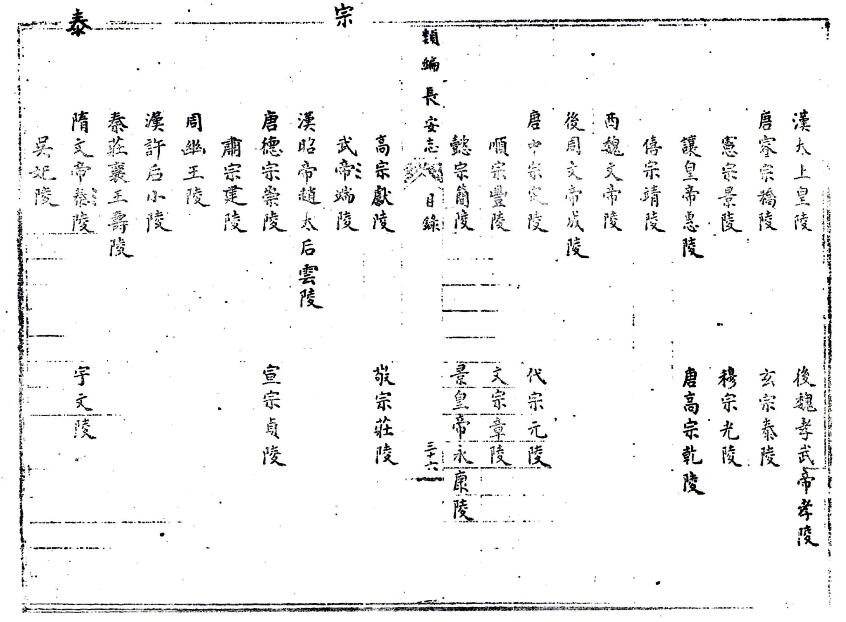 宗
泰
漢太上皇陵 後魏孝武帝孝陵
唐睿宗橋陵 玄宗泰陵
憲宗景陵 穆宗光陵
讓皇帝惠陵 唐高宗乾陵
僖宗靖陵
西魏文帝陵
後周文帝成陵
唐中宗定陵 代宗元陵
順宗豐陵 文宗章陵
懿宗簡陵 景皇帝永康陵
類編長安志 目錄 三十六
高宗獻陵 敬宗莊陵
武帝端陵
漢昭帝趙太后雲陵
唐德宗崇陵 宣宗貞陵
肅宗建陵
周幽王陵
漢許后小陵
秦莊襄王壽陵
隋文帝泰陵 宇文陵
吳妃陵